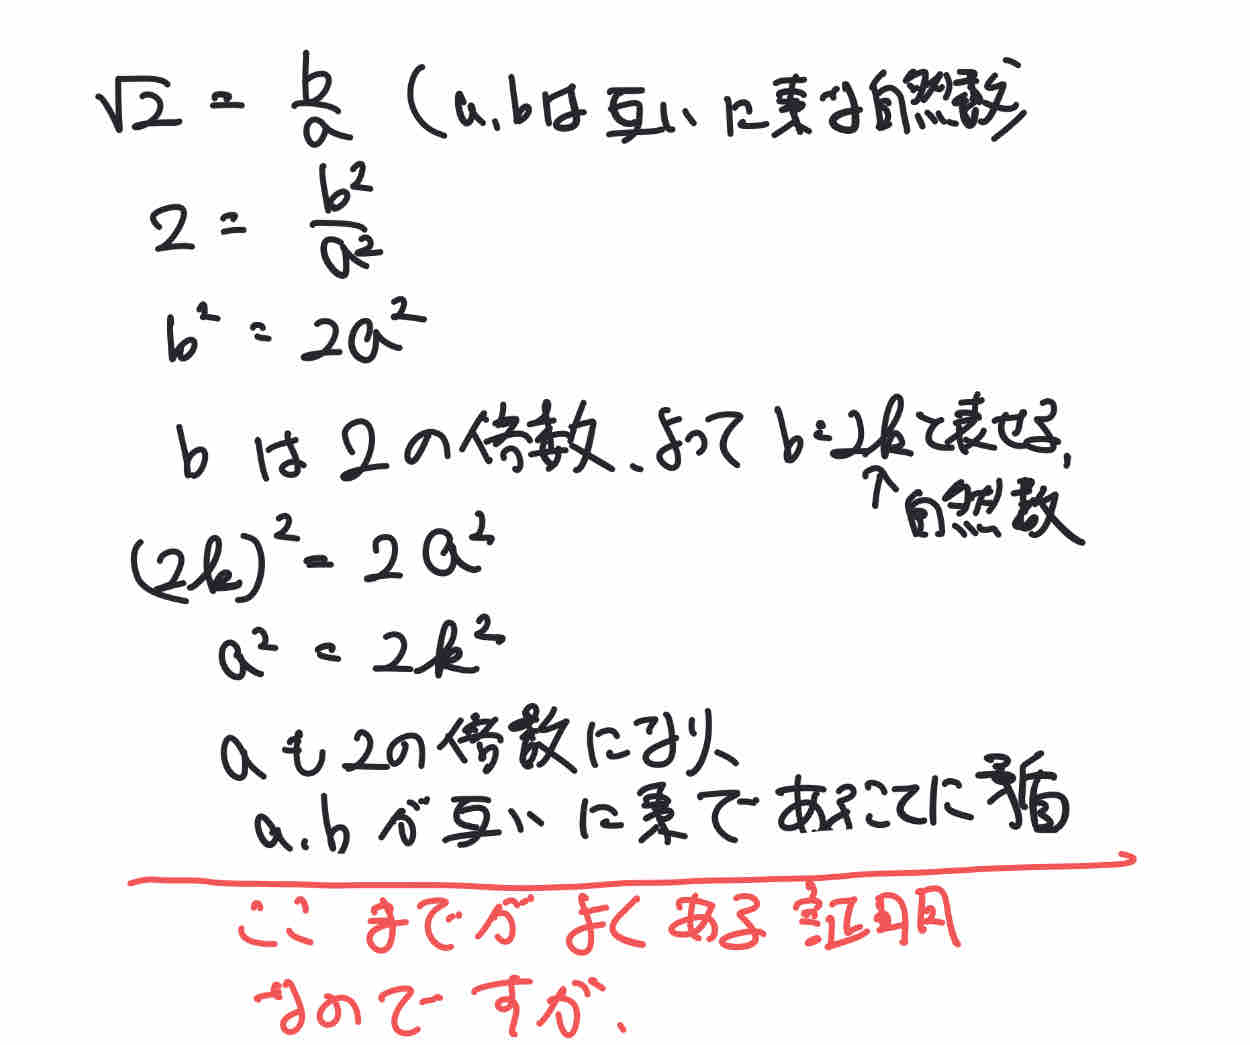 √2 = b/a (a,bは互いに素な自然数)
2 = b²/a²
b² = 2a²
bは2の倍数、よってb=2kと表せる,
↑自然数
(2k)² = 2a²
a² = 2k²
aも2の倍数になり、
a,bが互いに素であることに矛盾
ここまでがよくある証明
なのですが、